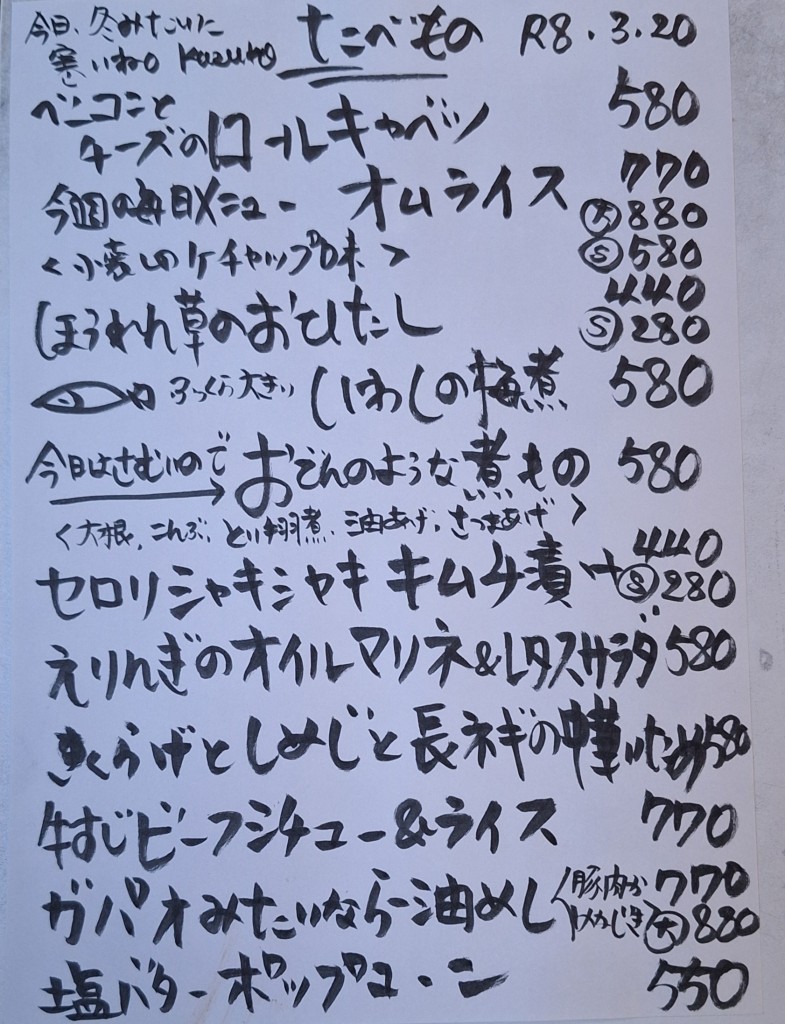 今日、冬みたいに たべもの R8.3.20
寒いねo Kazuko
ベーコンと 580
チーズのロールキャベツ
今週の毎日メニュー オムライス 770
大 880
<小妻しのケチャップ味> S 580
440
ほうれん草のおひたし S 280
ふっくら大きい いわしの梅煮 580
今日はさむいので おでんのような煮もの 580
<大根、こんぶ、とり手羽煮、油あげ、さつまあげ>
440
セロリシャキシャキキムチ漬け S 280
えりんぎのオイルマリネ&レタスサラダ 580
きくらげとしめじと長ネギの中華いため 580
牛すじビーフシチュー&ライス 770
ガパオみたいならー油めし <豚肉か 770
めかじき 大 880
塩バターポップコーン 550